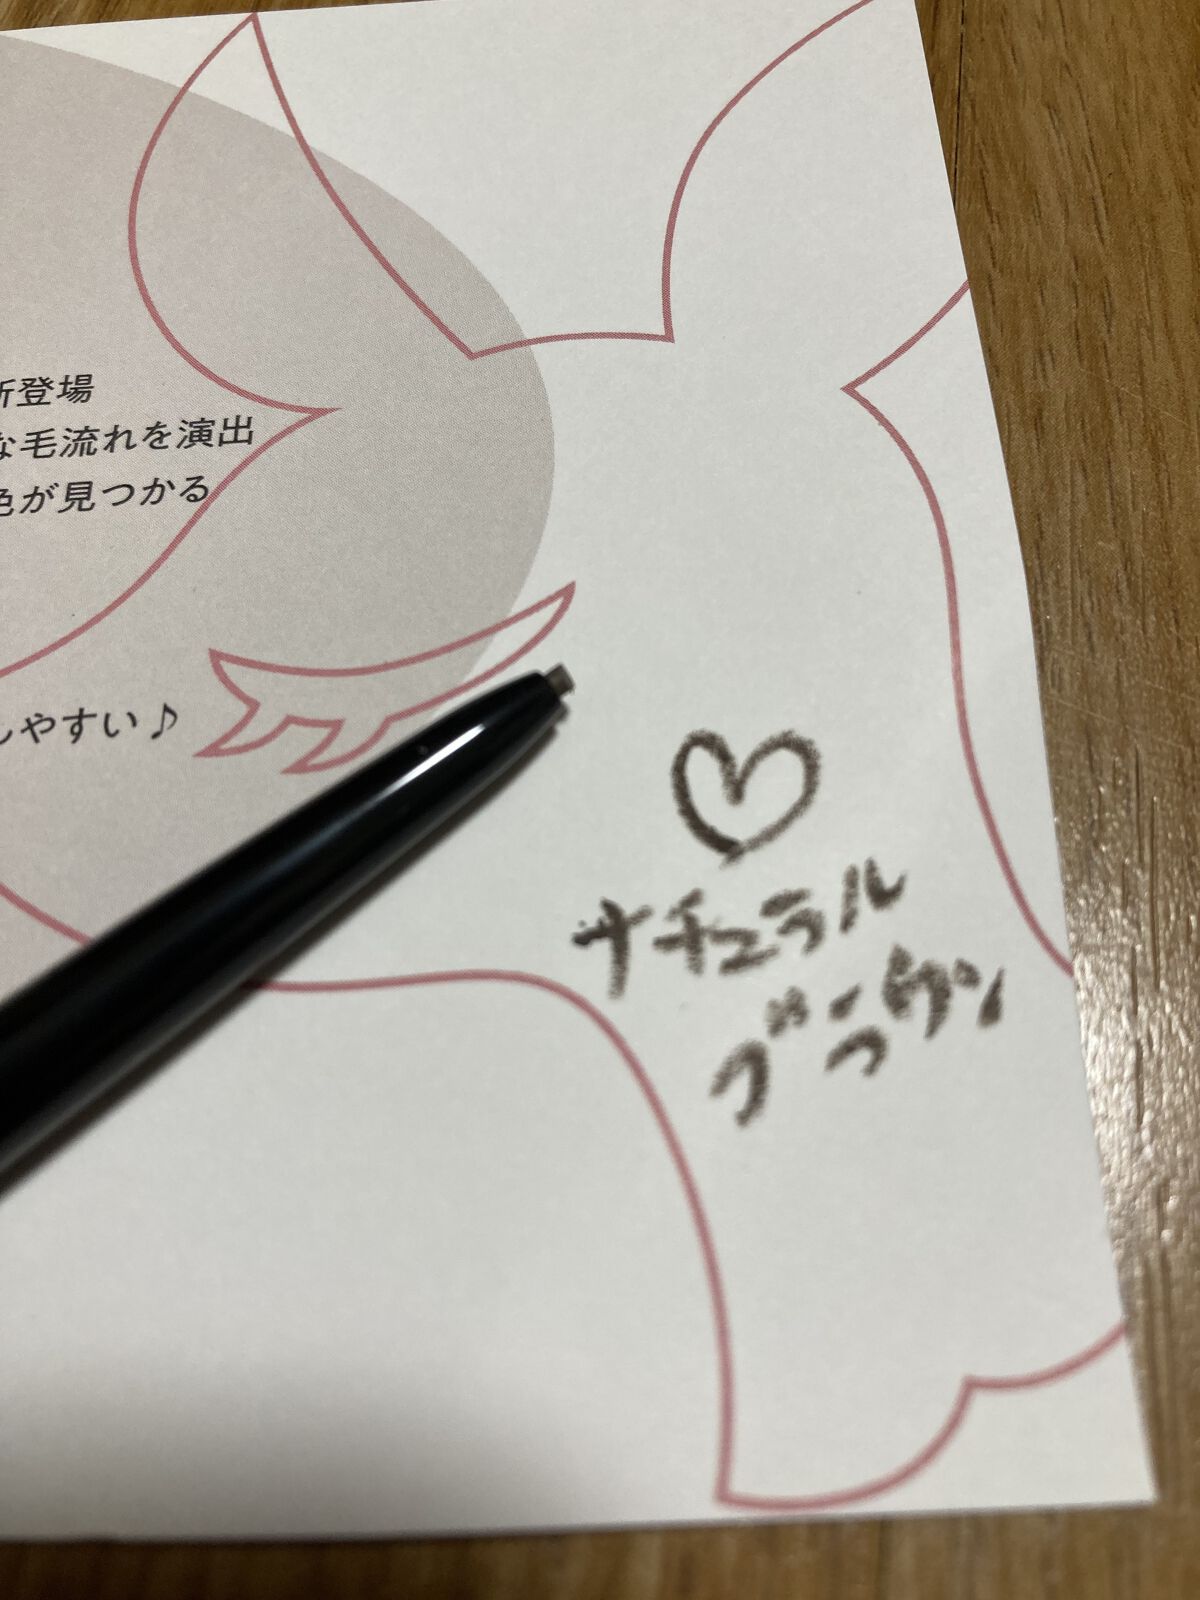 新登場
な毛流れを演出
色が見つかる
しやすい♪
♡
ナチュラル
ブラウン